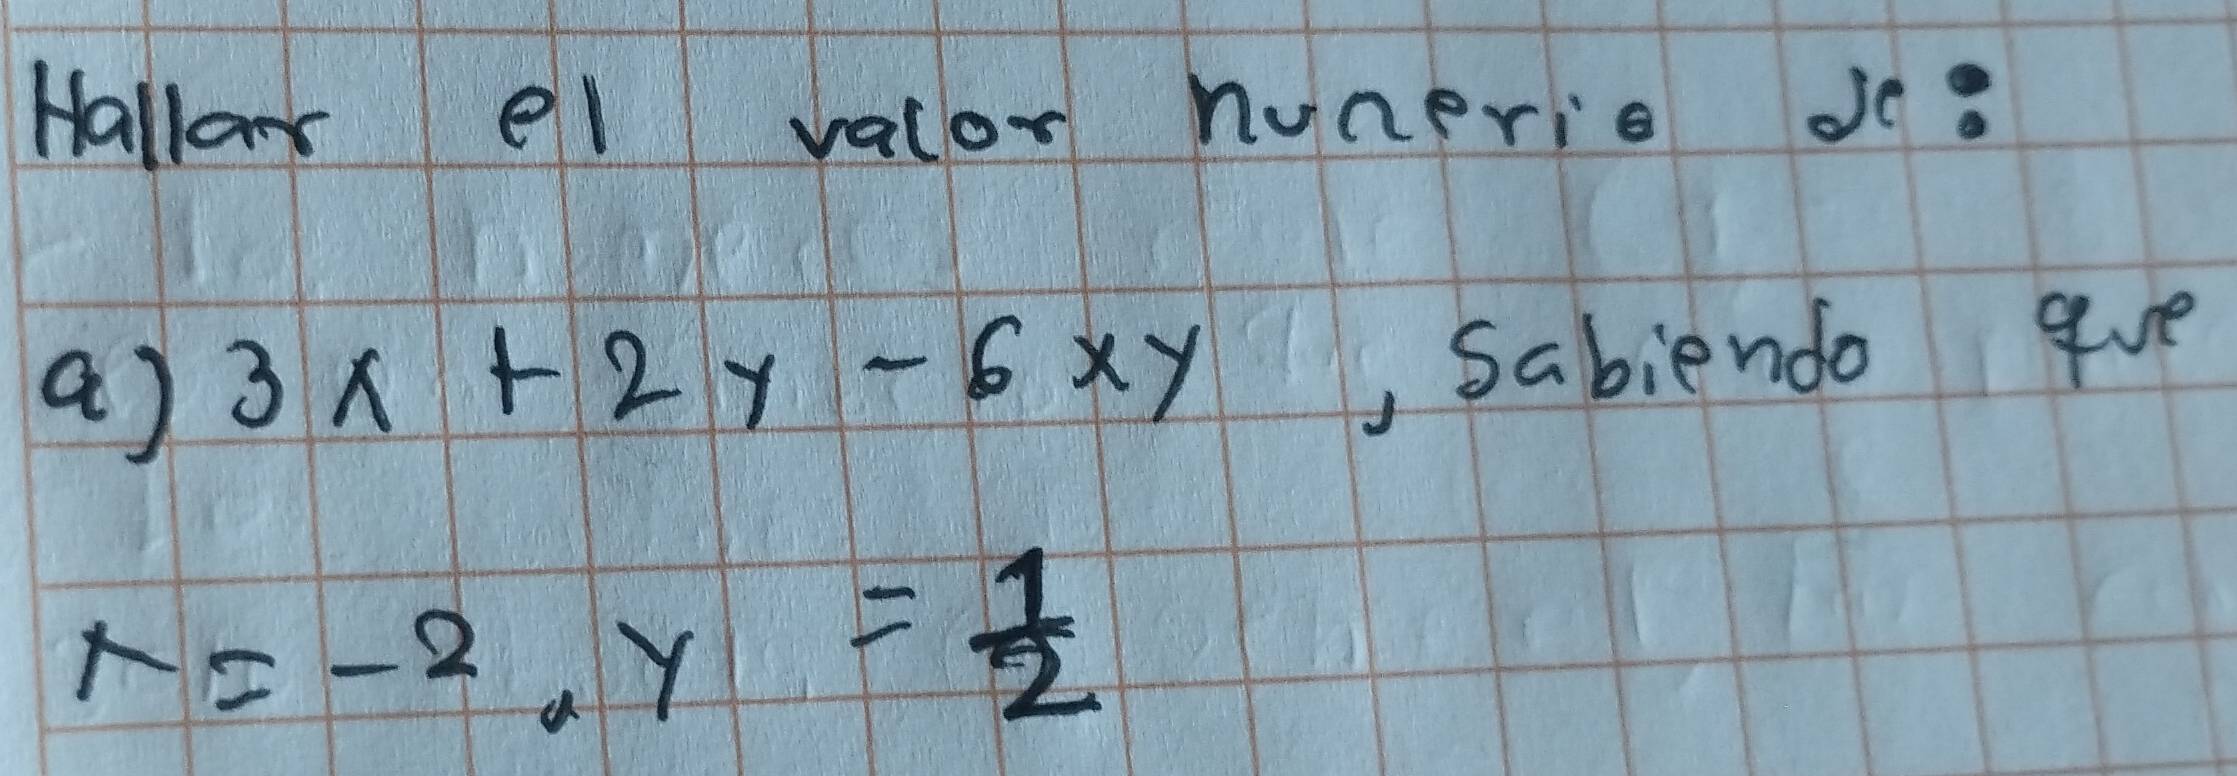 Hallar el valor nunerio de:
a) 3x + 2y - 6xy, sabiendo que
x = -2, y = 1/2